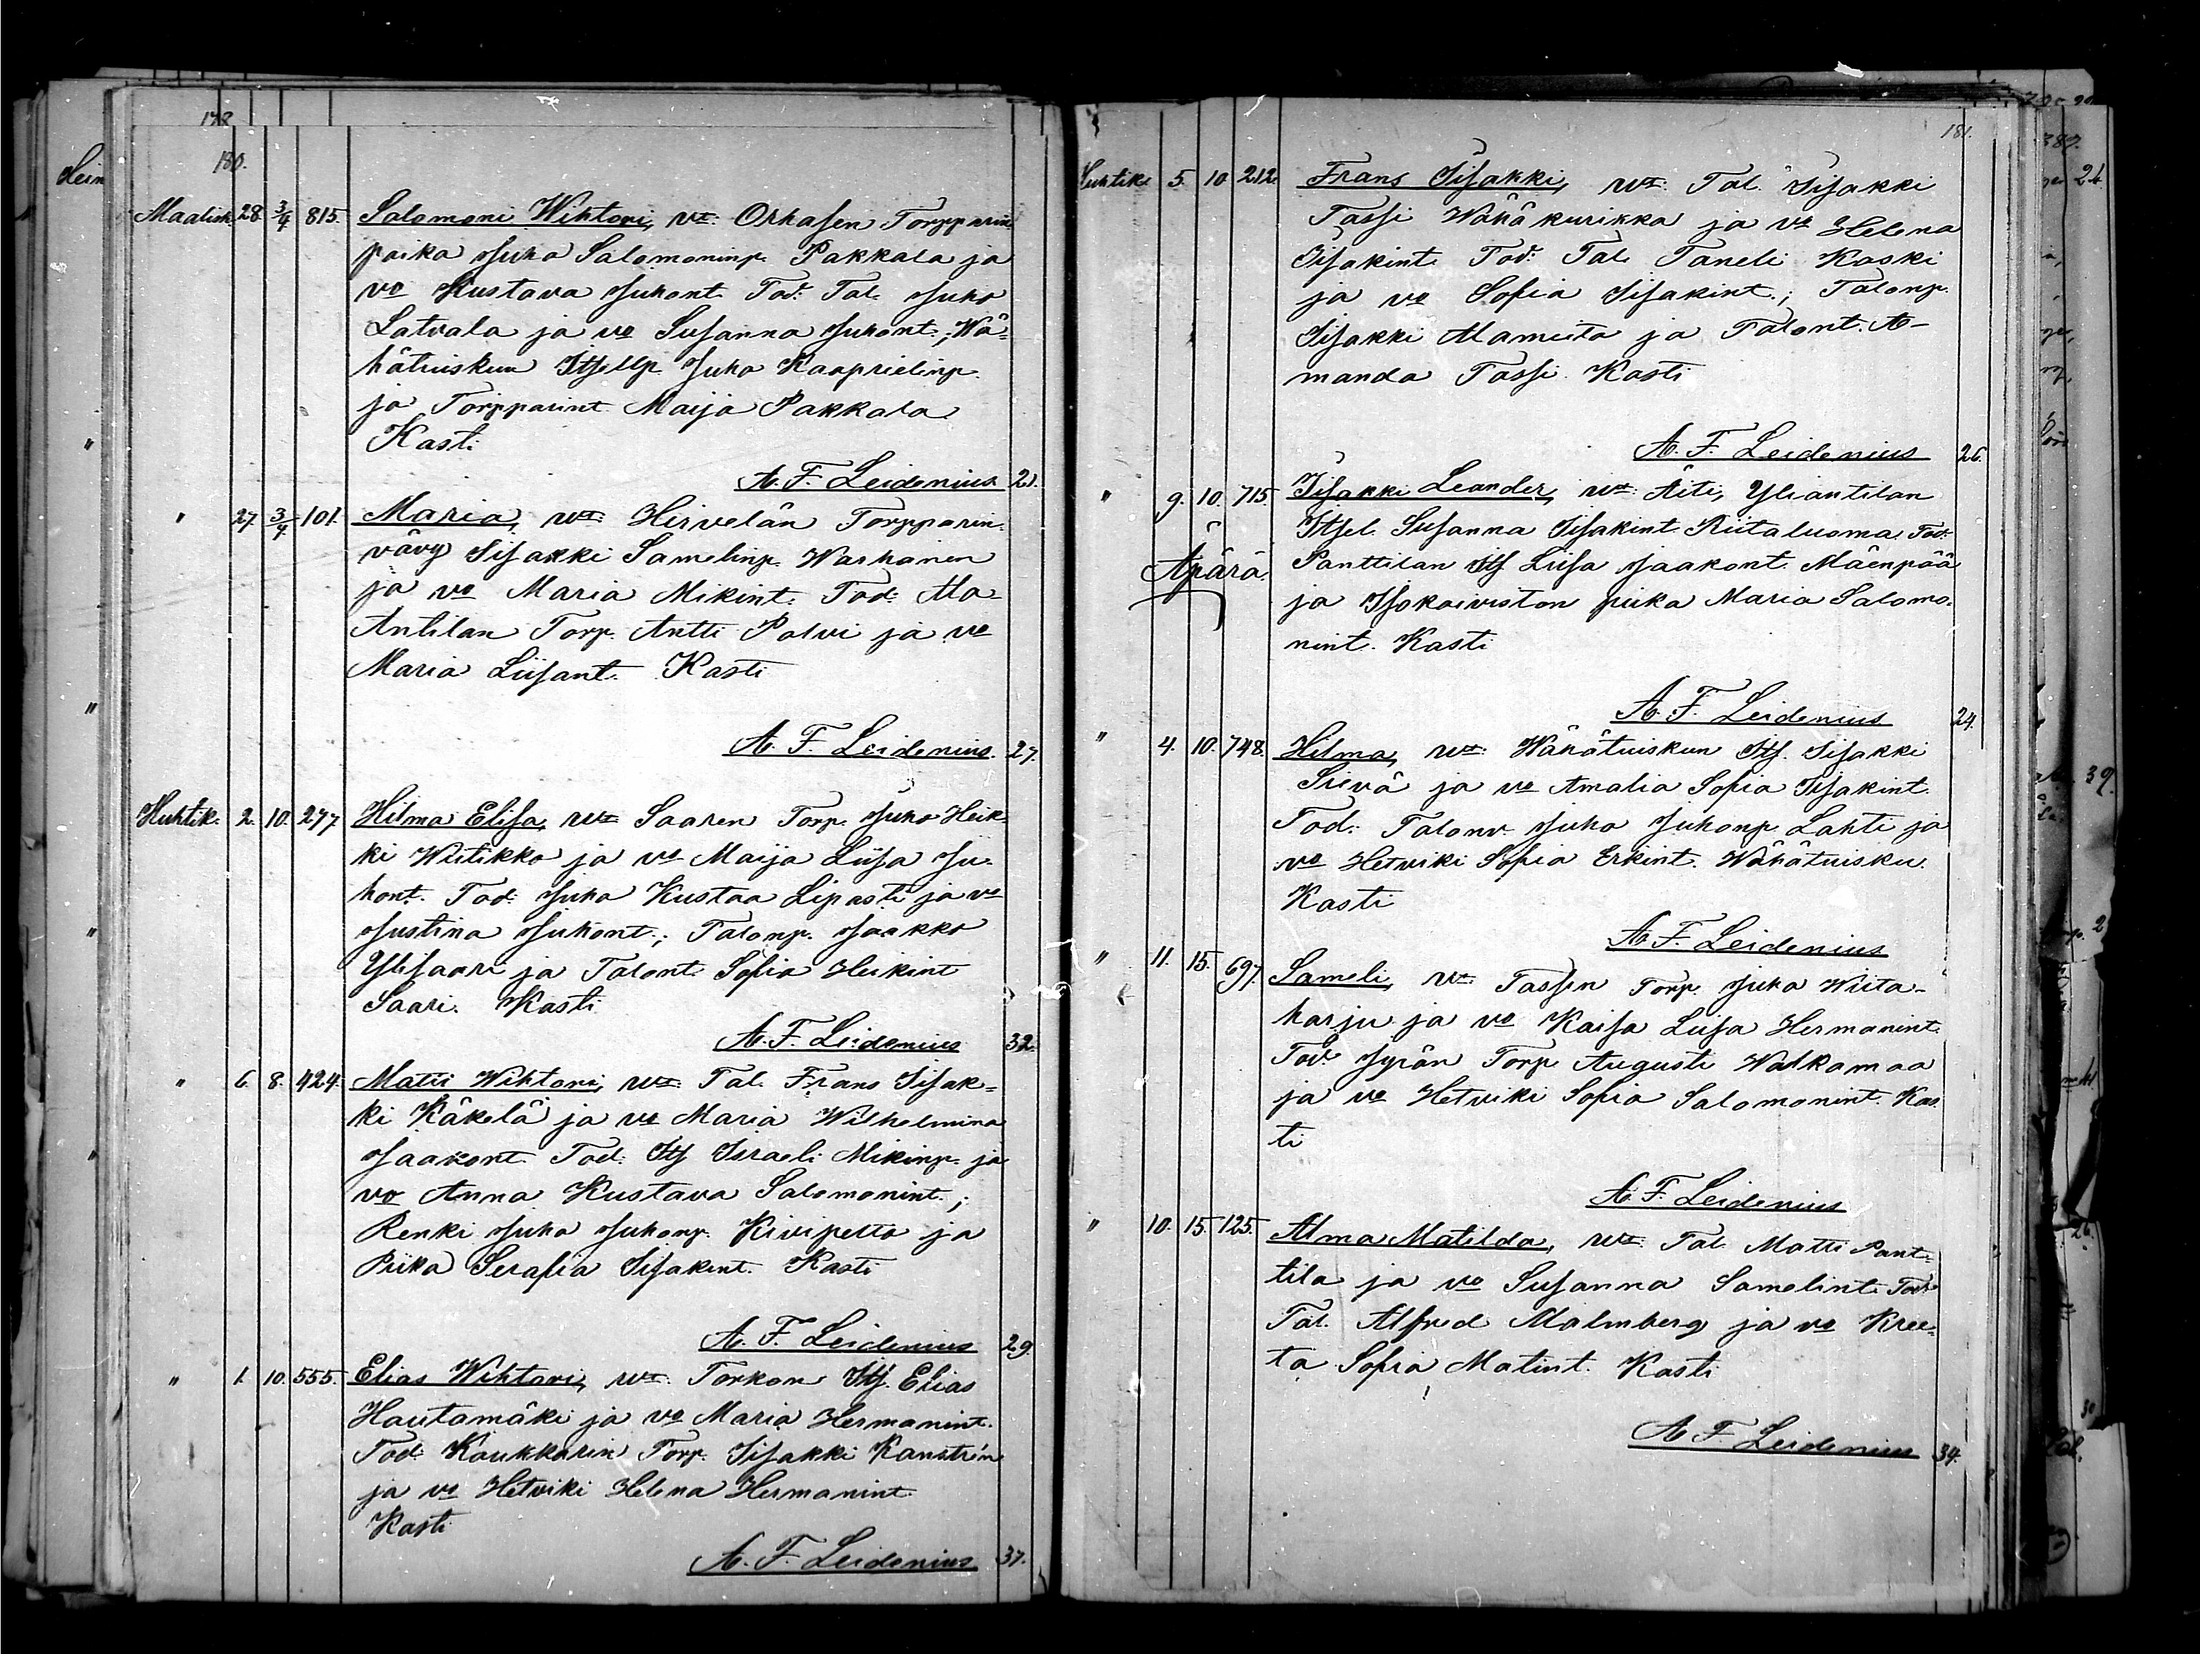 178
180.
Maalisk. 28. 3/4 815. Salomoni Wihtori, vt: Orhasen Torpparin
poika Juho Salomoninp. Pakkala ja
vo Kustava Juhont. Tod: Tal. Juho
Latvala ja vo Susanna Juhont.; Wä-
hätuiskun Itsellp. Juho Kaaprielinp.
ja Torpparint. Maija Pakkala
Kasti
A. F. Leidenius 21.
" 27. 3/4 101. Maria, vt: Hirvelän Torpparin
vävy Iisakki Samelinp. Warhanen
ja vo Maria Mikint. Tod: Ala-
Antilan Torp. Antti Palvi ja vo
Maria Liisant. Kasti
A. F. Leidenius. 27.
Huhtik. 2. 10. 277. Hilma Elisa, vt: Saaren Torp. Juho Heik-
ki Wiitikko ja vo Maija Liisa Ju-
hont. Tod: Juho Kustaa Lipasti ja vo
Justina Juhont.; Talonp. Jaakko
Ylisaari ja Talont. Sofia Heikint
Saari. Kasti
A. F. Leidenius 32.
" 6. 8. 424. Matti Wihtori, vt: Tal. Frans Iisak-
ki Käkelä ja vo Maria Wilhelmina
Jaakont. Tod: Its Israeli Mikinp. ja
vo Anna Kustava Salomonint.;
Renki Juho Juhonp. Kivipelto ja
Piika Serafia Iisakint. Kasti
A. F. Leidenius 29.
" 1. 10. 555. Elias Wihtori, vt: Torkon Its. Elias
Hautamäki ja vo Maria Hermanint.
Tod: Kaukkarin Torp. Iisakki Kanstrén
ja vo Hetviki Helena Hermanint.
Kasti
A. F. Leidenius 37.
181.
Huhtik. 5. 10 212. Frans Iisakki, vt: Tal. Iisakki
Tassi Wähäkurikka ja vo Helena
Iisakint. Tod: Tal. Taneli Koski
ja vo Sofia Iisakint.; Talonp.
Iisakki Alamiita ja Talont. A-
manda Tassi. Kasti
A. F. Leidenius 26.
" 9. 10. 715. Iisakki Leander, vt: Äiti, Yliantilan
Itsel. Susanna Iisakint. Riitaluoma Tod:
Äpärä. Panttilan Its Liisa Jaakont. Mäenpää
ja Isokoiviston piika Maria Salomo-
nint. Kasti
A. F. Leidenius 24.
" 4. 10. 748. Hilma, vt: Wähätuiskun Its. Iisakki
Sievä ja vo Amalia Sofia Iisakint.
Tod: Talonv. Juho Juhonp. Lahti ja
vo Hetviki Sofia Erkint. Wähätuisku.
Kasti
A. F. Leidenius
" 11. 15. 697. Sameli, vt: Tassin Torp. Juho Wiita-
harju ja vo Kaisa Liisa Hermanint.
Tod: Jyrän Torp Augusti Walkamaa
ja vo Hetviki Sofia Salomonint. Kas
ti
A. F. Leidenius
" 10. 15. 125. Alma Matilda, vt: Tal. Matti Pant-
tila ja vo Susanna Samelint. Tod:
Tal. Alfred Malmberg ja vo Kree-
ta Sofia Matint. Kasti
A. F. Leidenius 34.